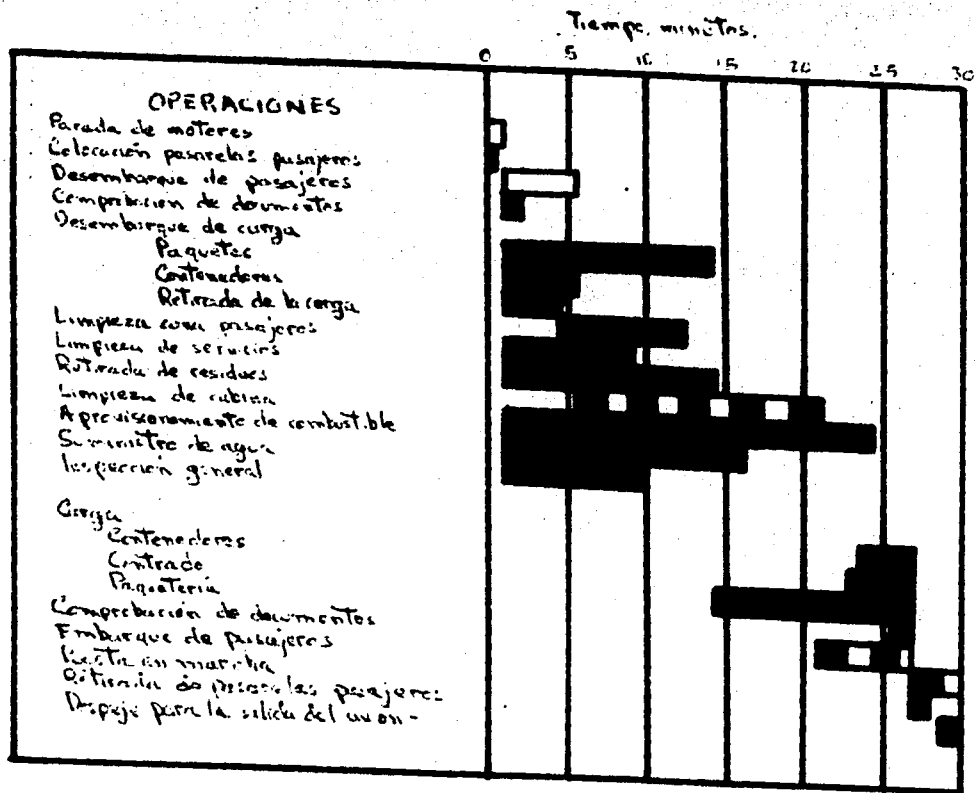 Tiempo, minutos.
0 5 10 15 20 25 30
OPERACIONES
Parada de motores
Colocación pasarelas pasajeros
Desembarque de pasajeros
Comprobación de documentos
Desembarque de carga
Paquetes
Contenedores
Retirada de la carga
Limpieza zona pasajeros
Limpieza de servicios
Retirada de residuos
Limpieza de cabina
Aprovisionamiento de combustible
Suministro de agua
Inspección general
Carga
Contenedores
Centrado
Paquetería
Comprobación de documentos
Embarque de pasajeros
Puesta en marcha
Retirada de pasarelas pasajeros
Despeje para la salida del avion-